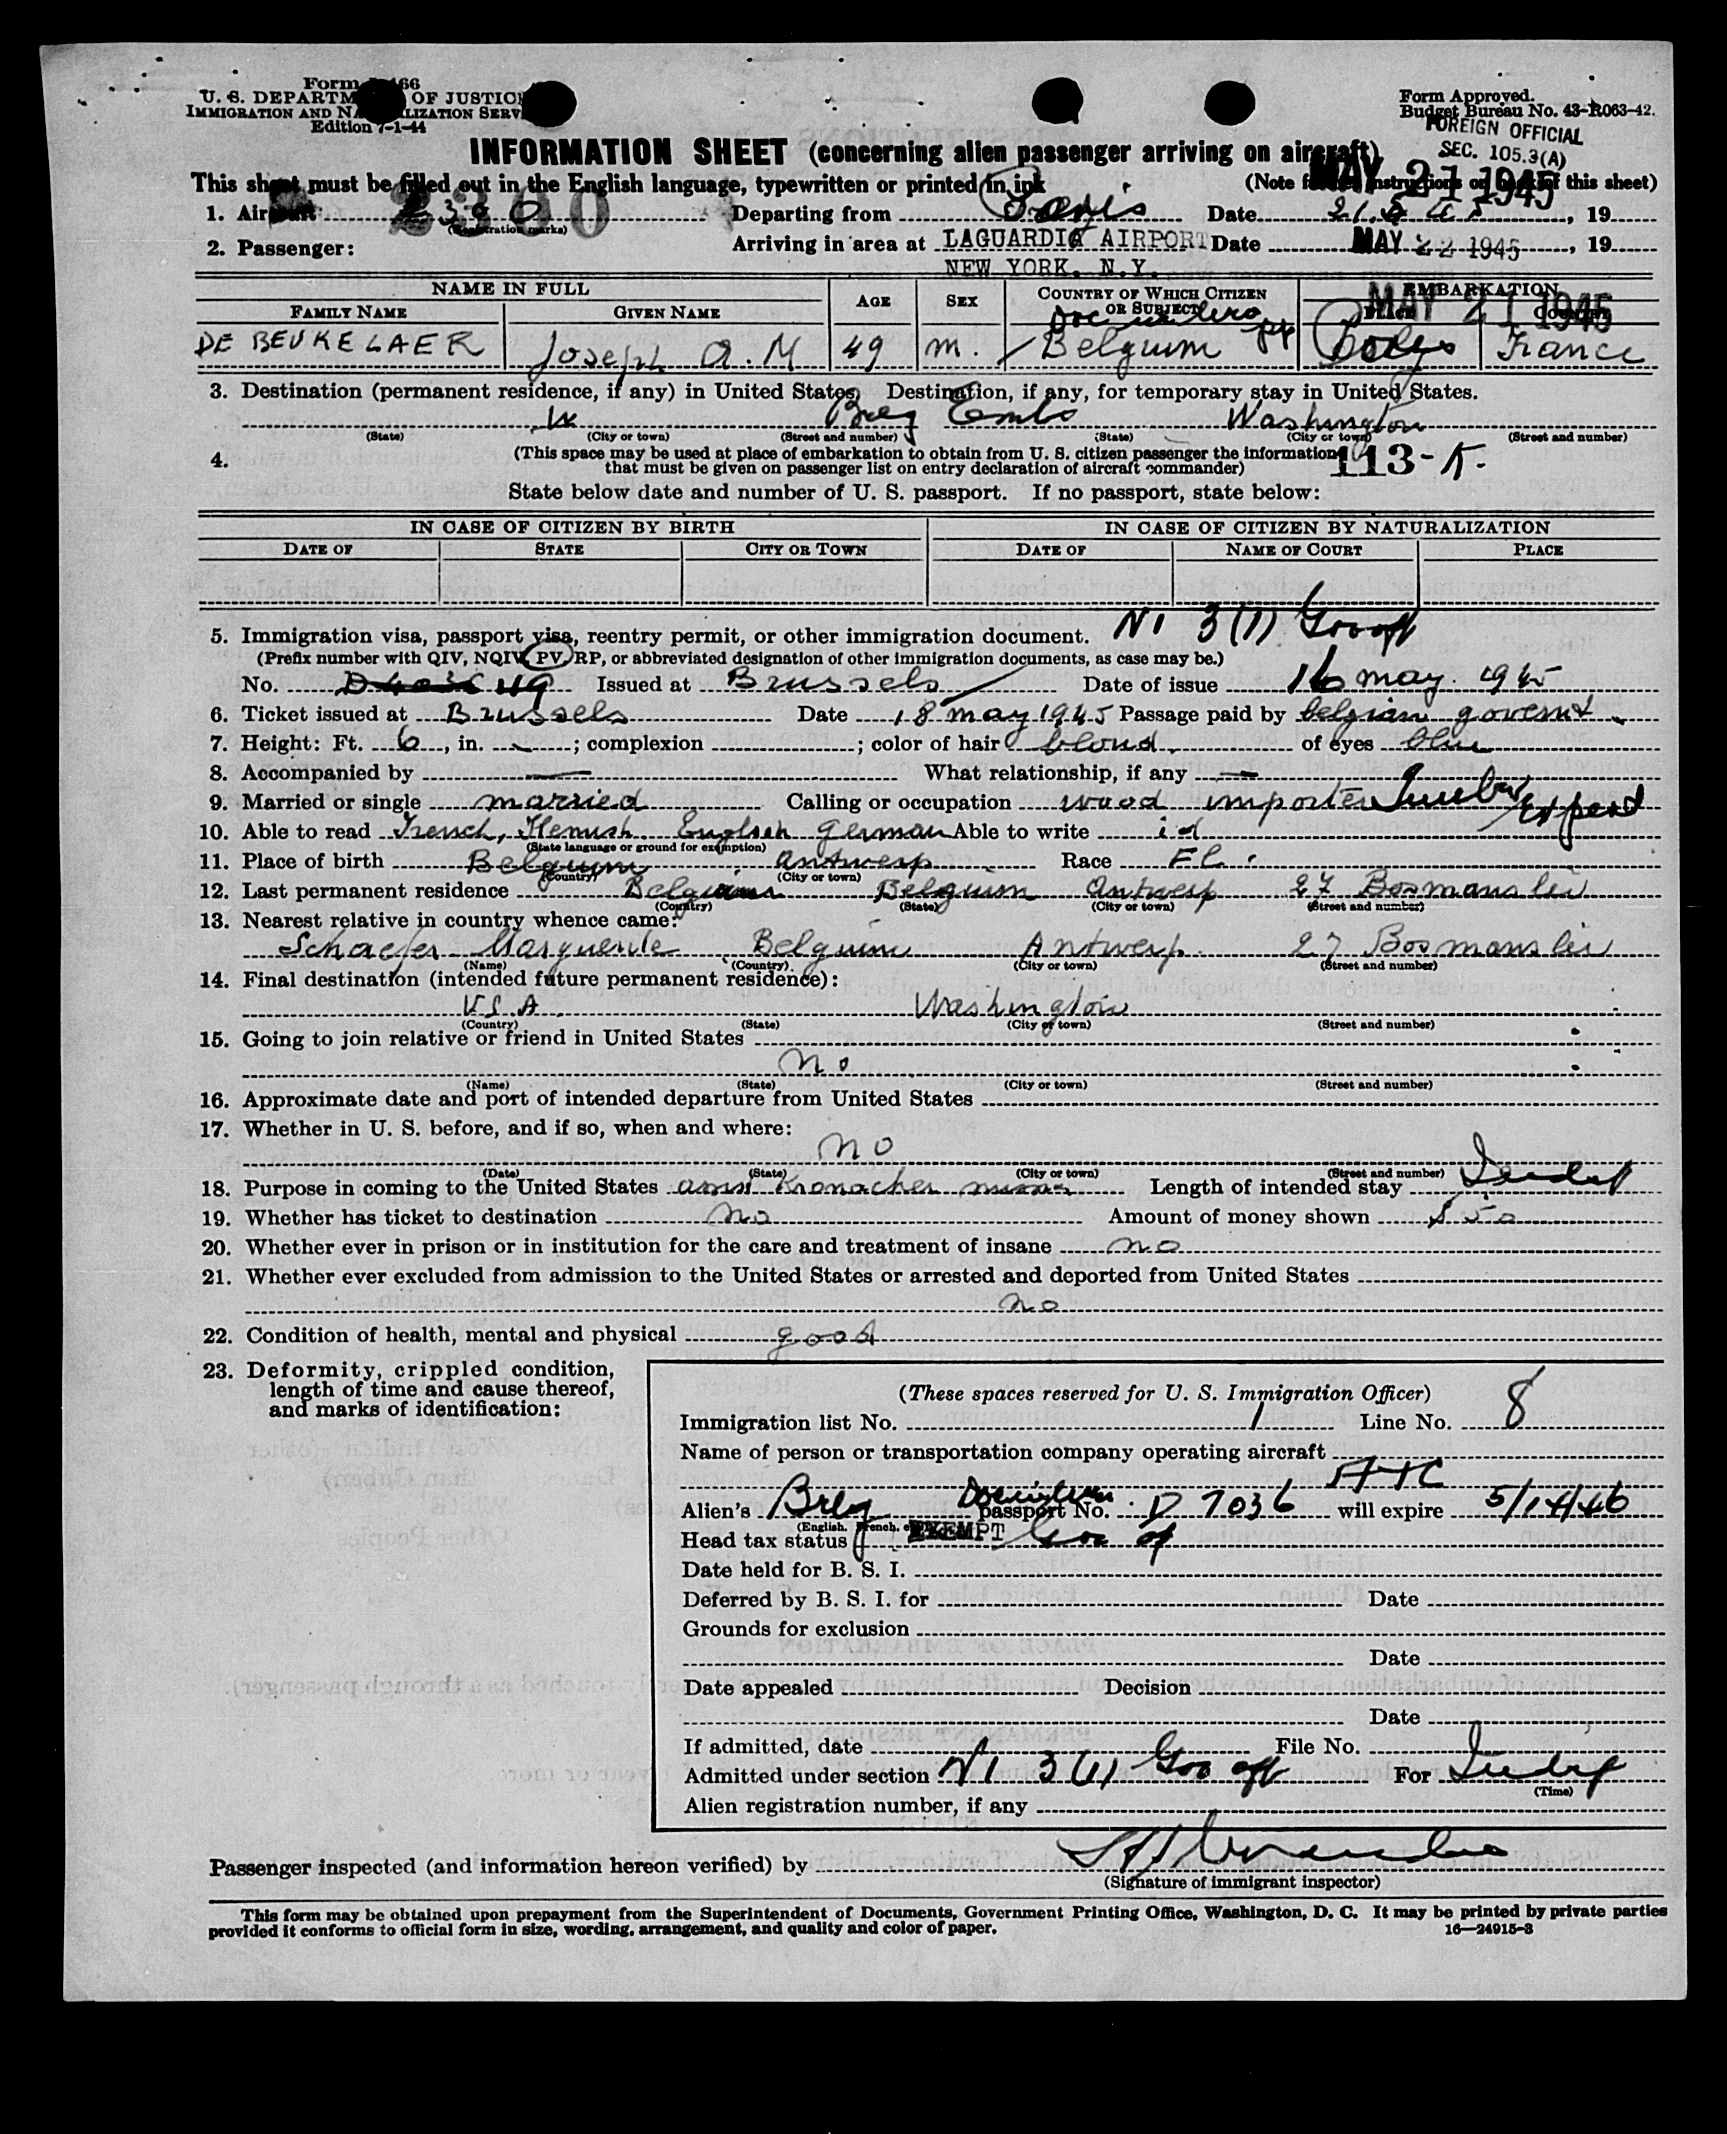 Form 466
U. S. DEPARTM OF JUSTIC
IMMIGRATION AND NA LIZATION SERV
Edition 7-1-44
Form Approved.
Budget Bureau No. 43-R063-42.
FOREIGN OFFICIAL
SEC. 105.3(A)
INFORMATION SHEET (concerning alien passenger arriving on aircraft)
MAY 21 1945
This sheet must be filled out in the English language, typewritten or printed in ink (Note instructions on back of this sheet)
1. Aircraft 2300 Departing from Paris Date 21.5.45, 19
(Registration marks)
2. Passenger: Arriving in area at LAGUARDIA AIRPORT Date MAY 22 1945, 19
NEW YORK, N.Y.
NAME IN FULL AGE SEX COUNTRY OF WHICH CITIZEN OR SUBJECT EMBARKATION
MAY 21 1945
FAMILY NAME GIVEN NAME PLACE COUNTRY
DE BEUKELAER Joseph A. M 49 m. Belgium pp France
3. Destination (permanent residence, if any) in United States. Destination, if any, for temporary stay in United States.
Belg Emb Washington
(State) (City or town) (Street and number) (State) (City or town) (Street and number)
4. (This space may be used at place of embarkation to obtain from U. S. citizen passenger the information
that must be given on passenger list on entry declaration of aircraft commander)
113-K.
State below date and number of U. S. passport. If no passport, state below:
IN CASE OF CITIZEN BY BIRTH IN CASE OF CITIZEN BY NATURALIZATION
DATE OF STATE CITY OR TOWN DATE OF NAME OF COURT PLACE
5. Immigration visa, passport visa, reentry permit, or other immigration document. NI 3(1) Gov off
(Prefix number with QIV, NQIV, PV, RP, or abbreviated designation of other immigration documents, as case may be.)
No. 119 Issued at Brussels Date of issue 16 may. 1945
6. Ticket issued at Brussels Date 18 may 1945 Passage paid by belgian governt
7. Height: Ft. 6, in. -; complexion ; color of hair blond. of eyes blue
8. Accompanied by — What relationship, if any —
9. Married or single married Calling or occupation wood importer Lumber Expert
10. Able to read French, Flemish English German Able to write id
(State language or ground for exemption)
11. Place of birth Belgium Antwerp Race FL.
(Country) (City or town)
12. Last permanent residence Belgium Belgium Antwerp 27 Bosmanslei
(Country) (State) (City or town) (Street and number)
13. Nearest relative in country whence came:
Schaefer Marguerite Belgium Antwerp. 27 Bosmanslei
(Name) (Country) (City or town) (Street and number)
14. Final destination (intended future permanent residence):
U.S.A. Washington
(Country) (State) (City or town) (Street and number)
15. Going to join relative or friend in United States
no
(Name) (State) (City or town) (Street and number)
16. Approximate date and port of intended departure from United States
17. Whether in U. S. before, and if so, when and where:
no
(Date) (State) (City or town) (Street and number)
18. Purpose in coming to the United States Kronacher Length of intended stay Indef
19. Whether has ticket to destination no Amount of money shown $ 50
20. Whether ever in prison or in institution for the care and treatment of insane no
21. Whether ever excluded from admission to the United States or arrested and deported from United States
no
22. Condition of health, mental and physical good
23. Deformity, crippled condition,
length of time and cause thereof,
and marks of identification:
(These spaces reserved for U. S. Immigration Officer)
Immigration list No. 1 Line No. 8
Name of person or transportation company operating aircraft
ATC
Alien's Belg passport No. D 7036 will expire 5/14/46
(English, French, etc.)
Head tax status EXEMPT Gov of
Date held for B. S. I.
Deferred by B. S. I. for Date
Grounds for exclusion
Date
Date appealed Decision
Date
If admitted, date File No.
Admitted under section NI 3(1) Gov off For Indef
(Time)
Alien registration number, if any
Passenger inspected (and information hereon verified) by
(Signature of immigrant inspector)
This form may be obtained upon prepayment from the Superintendent of Documents, Government Printing Office, Washington, D. C. It may be printed by private parties
provided it conforms to official form in size, wording, arrangement, and quality and color of paper. 16—24915-3